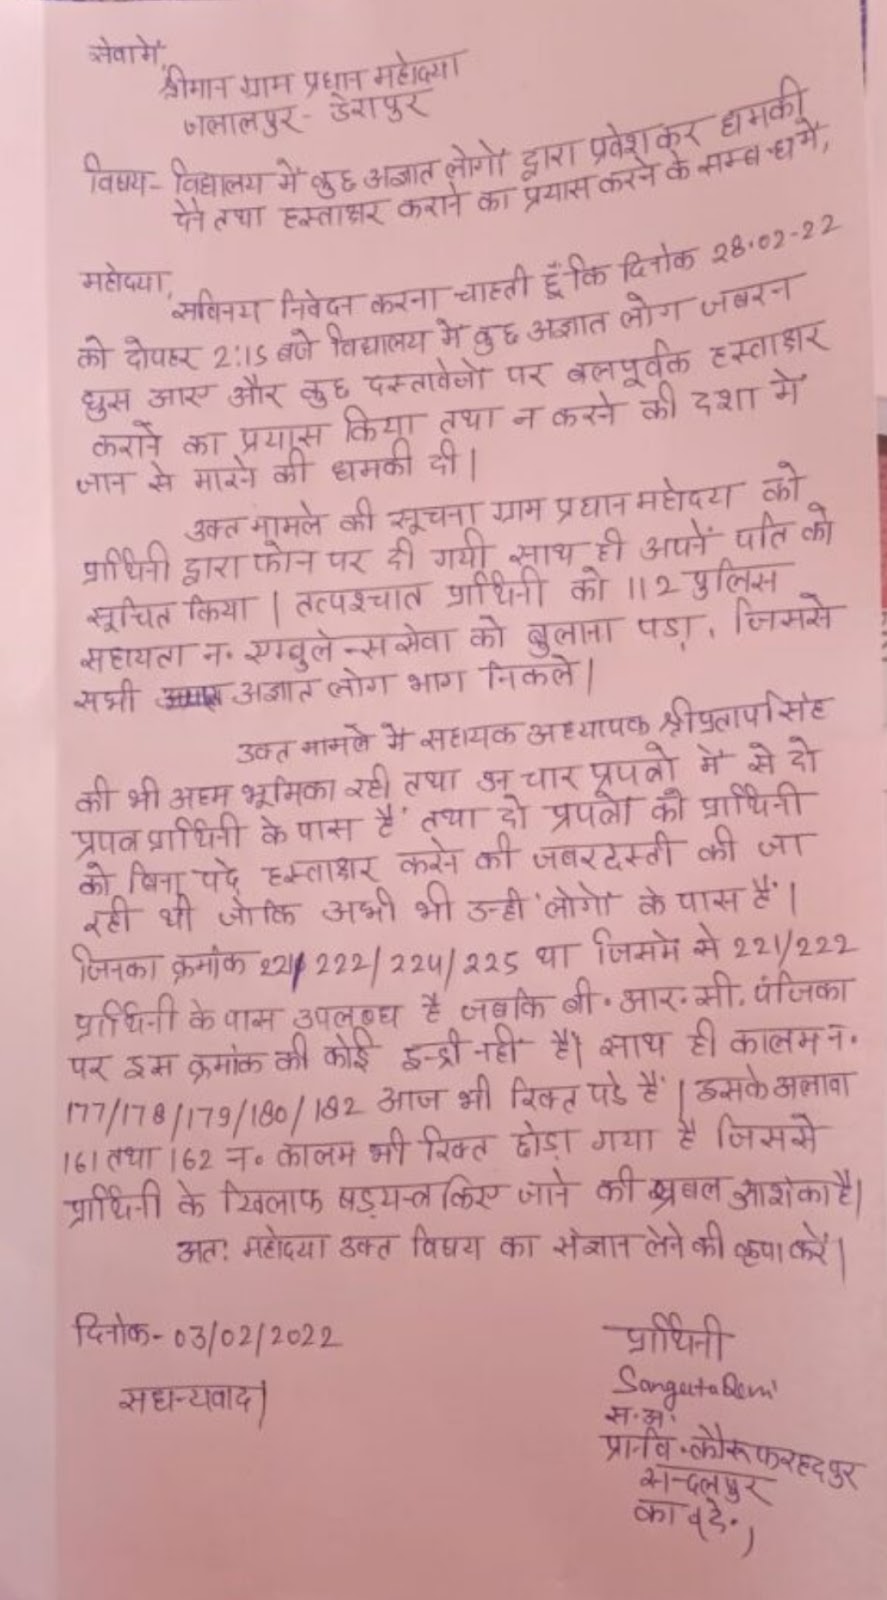 सेवामें,
श्रीमान ग्राम प्रधान महोदया
जलालपुर - डेरापुर
विषय - विद्यालय में कुछ अज्ञात लोगों द्वारा प्रवेश कर धमकी
देने तथा हस्ताक्षर कराने का प्रयास करने के सम्बन्ध में,
महोदया,
सविनय निवेदन करना चाहती हूँ कि दिनांक 28.02-22
को दोपहर 2:15 बजे विद्यालय में कुछ अज्ञात लोग जबरन
घुस आए और कुछ दस्तावेजों पर बलपूर्वक हस्ताक्षर
कराने का प्रयास किया तथा न करने की दशा में
जान से मारने की धमकी दी|
उक्त मामले की सूचना ग्राम प्रधान महोदया को
प्रार्थिनी द्वारा फोन पर दी गयी साथ ही अपने पति को
सूचित किया | तत्पश्चात प्रार्थिनी को 112 पुलिस
सहायता न. एम्बुलेन्स सेवा को बुलाना पड़ा, जिससे
सभी अज्ञात लोग भाग निकले|
उक्त मामले में सहायक अध्यापक श्री प्रताप सिंह
की भी अहम भूमिका रही तथा उन चार प्रपत्रों में से दो
प्रपत्र प्रार्थिनी के पास हैं तथा दो प्रपत्रों को प्रार्थिनी
को बिना पढ़े हस्ताक्षर करने की जबरदस्ती की जा
रही थी जोकि अभी भी उन्हीं लोगों के पास हैं|
जिनका क्रमांक 221/222/224/225 था जिसमें से 221/222
प्रार्थिनी के पास उपलब्ध है जबकि बी.आर.सी. पंजिका
पर इस क्रमांक की कोई इन्ट्री नहीं है| साथ ही कालम न.
177/178/179/180/182 आज भी रिक्त पड़े हैं | इसके अलावा
161 तथा 162 न. कालम भी रिक्त छोड़ा गया है जिससे
प्रार्थिनी के खिलाफ षड्यन्त्र किए जाने की प्रबल आशंका है|
अतः महोदया उक्त विषय का संज्ञान लेने की कृपा करें|
दिनांक - 03/02/2022
सधन्यवाद|
प्रार्थिनी
Sangeeta Devi
स.अ.
प्रा.वि. कौरू फरहदपुर
सन्दलपुर
का.दे.,